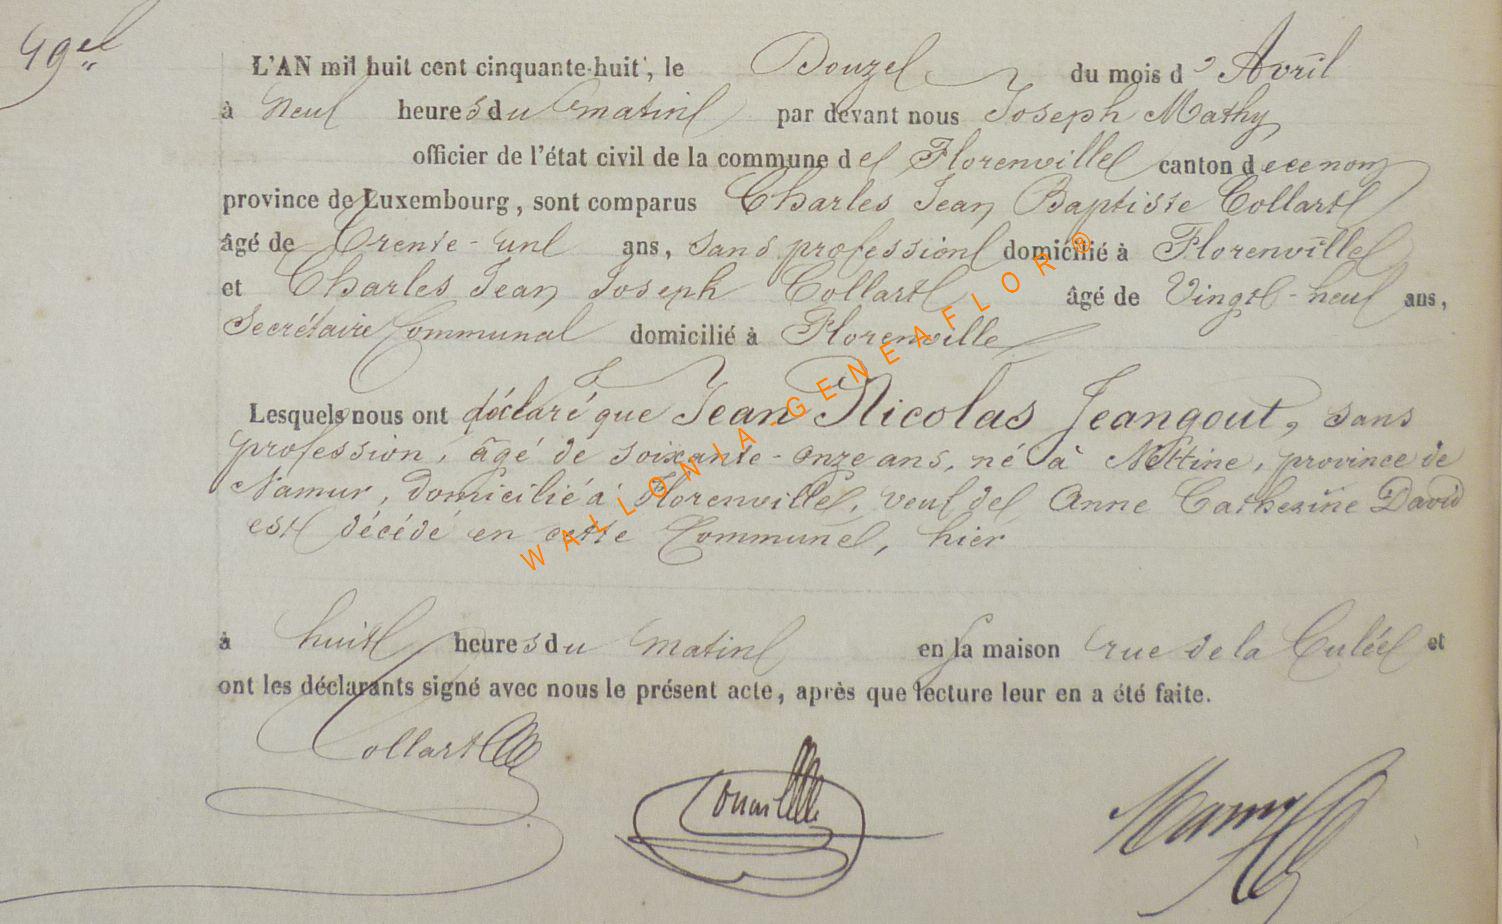 49e
L'AN mil huit cent cinquante-huit, le Douze du mois d'Avril
à neuf heures du matin par devant nous Joseph Mathy
officier de l'état civil de la commune de Florenville canton de ce nom
province de Luxembourg, sont comparus Charles Jean Baptiste Collart
âgé de Trente-un ans, sans profession domicilié à Florenville
et Charles Jean Joseph Collart âgé de Vingt-neuf ans,
Secrétaire Communal domicilié à Florenville
Lesquels nous ont déclaré que Jean Nicolas Jeangout, sans
profession, âgé de soixante-onze ans, né à Nettine, province de
Namur, domicilié à Florenville, veuf de Anne Catherine David
est décédé en cette Commune, hier
à huit heures du matin en la maison rue de la Culée et
ont les déclarants signé avec nous le présent acte, après que lecture leur en a été faite.
Collart
WALLONIA-GENEAFLOR®